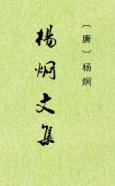 〔唐〕杨炯
楊炯文集